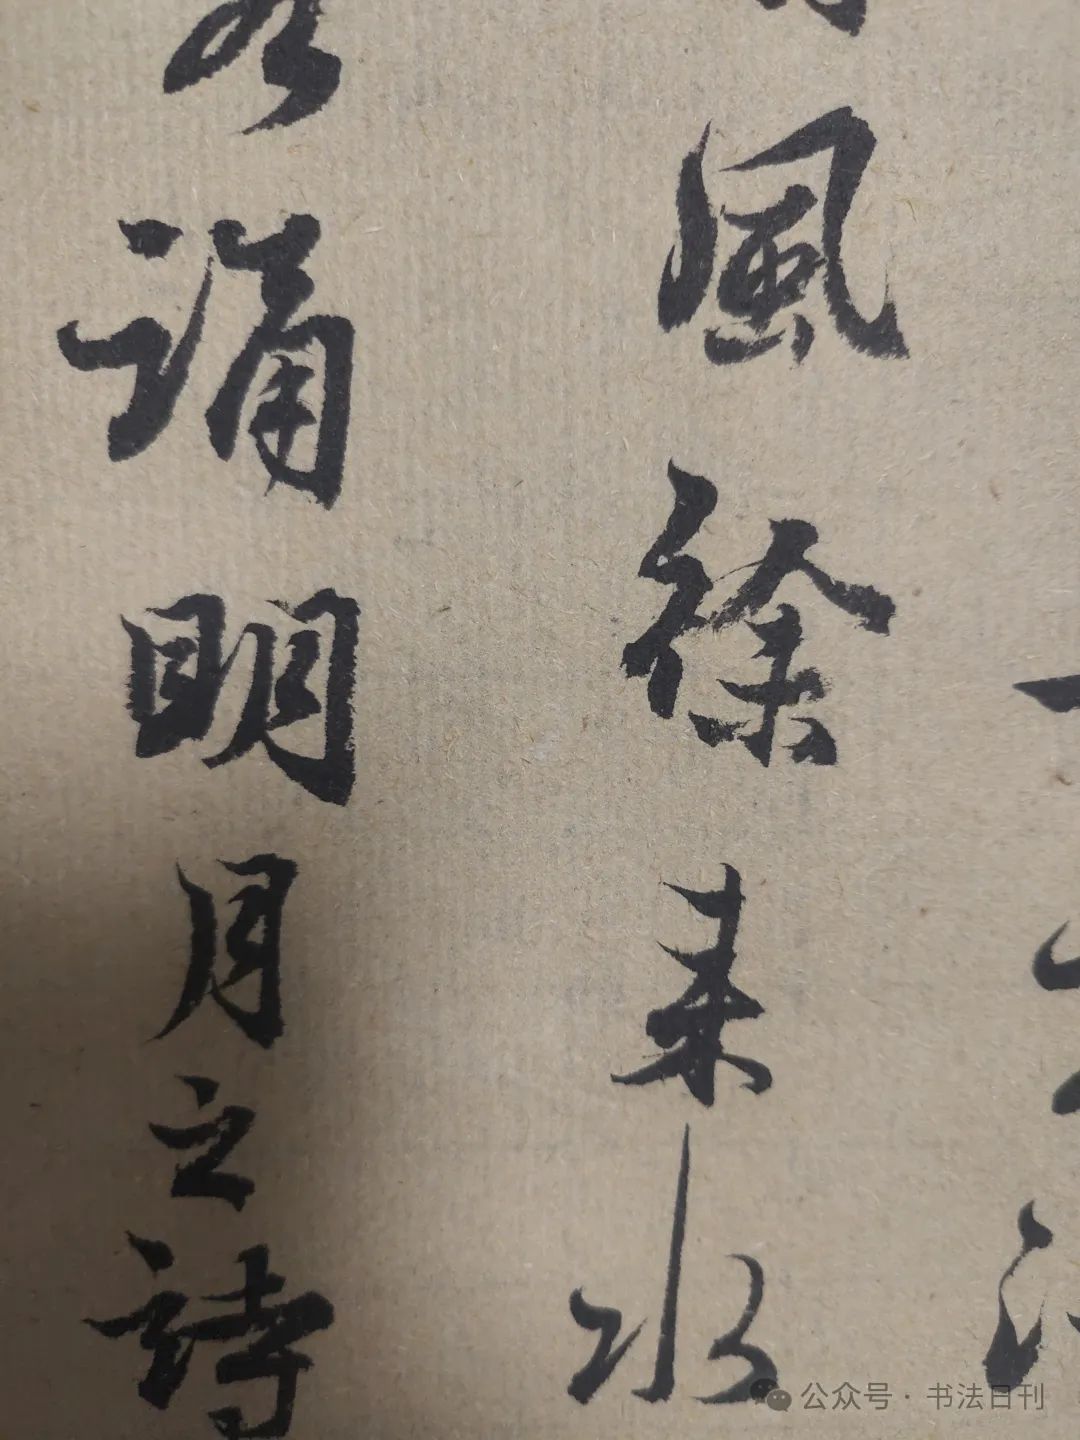 風徐来水
客誦明月之詩
公众号·书法日刊